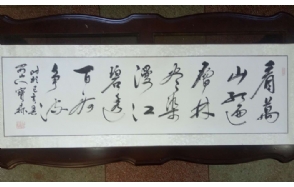 看萬
山红遍
層林
尽染
漫江
碧透
百舸
争流